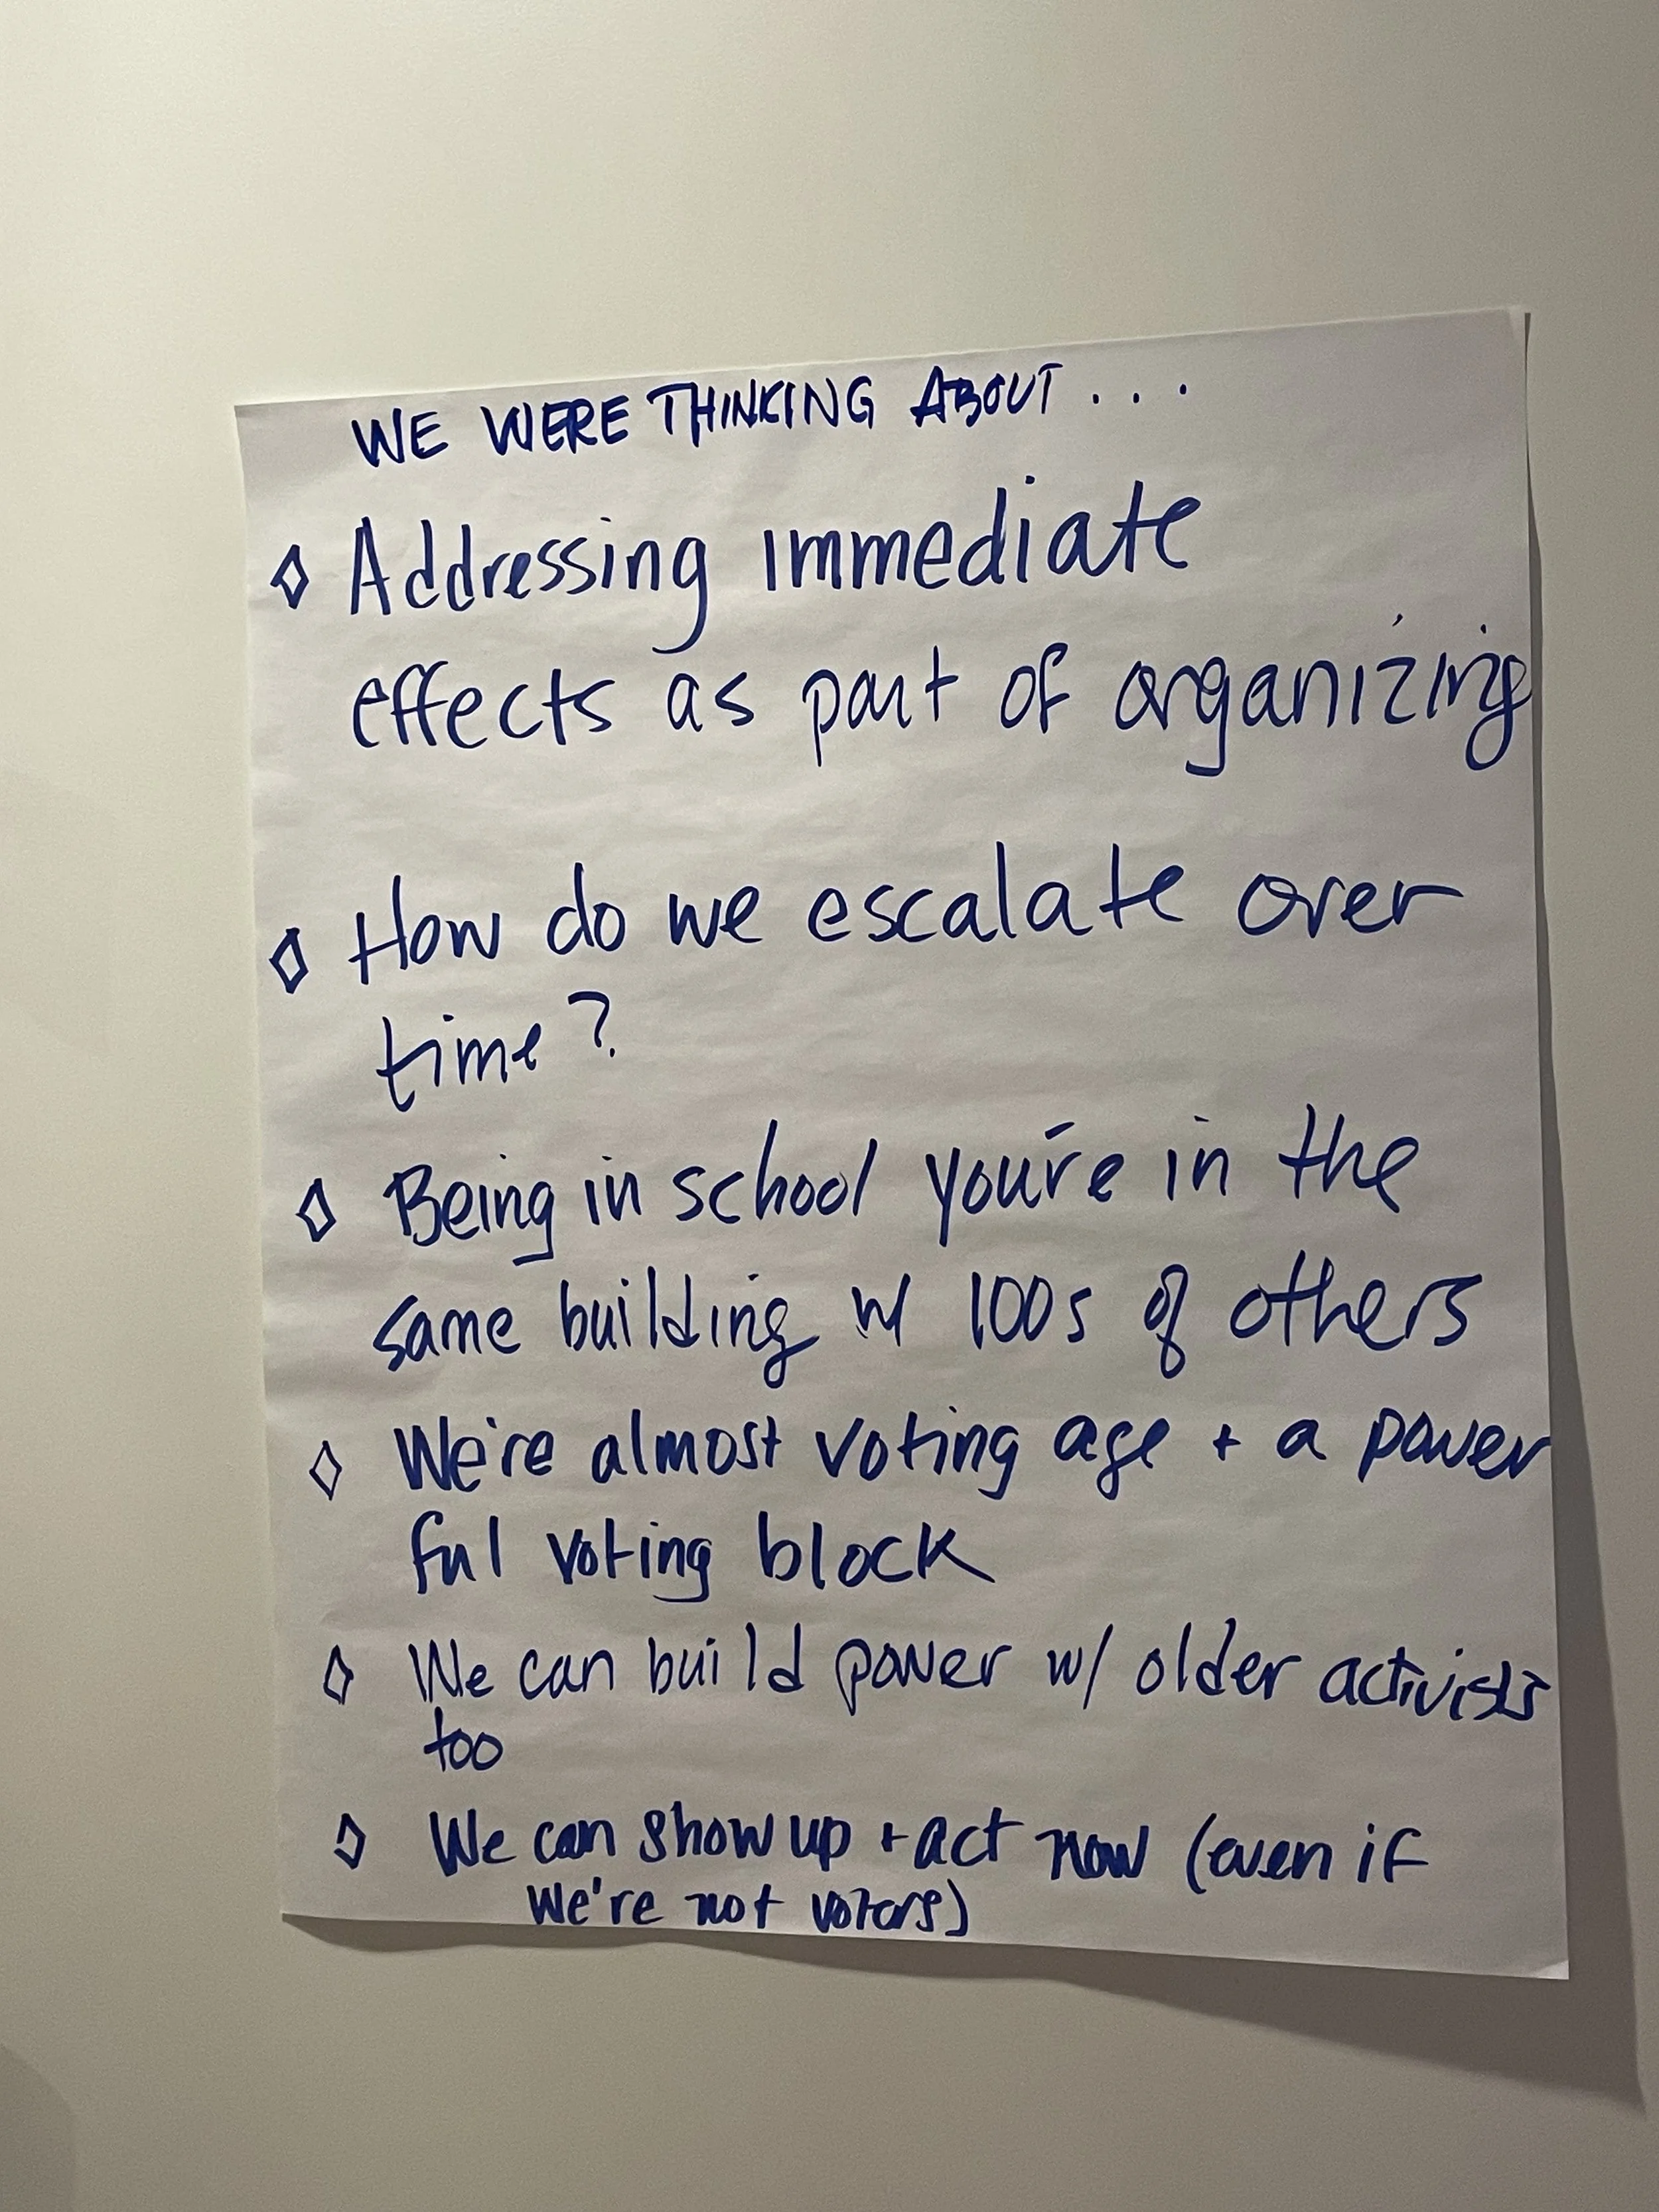 WE WERE THINKING ABOUT . . .
◊ Addressing immediate
effects as part of organizing
◊ How do we escalate over
time?
◊ Being in school you're in the
same building w/ 100s of others
◊ We're almost voting age + a power
ful voting block
◊ We can build power w/ older activists
too
◊ We can show up + act now (even if
we're not voters)